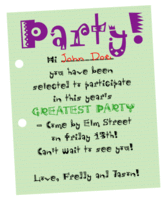 Party!
Hi John Doe,
you have been
selected to participate
in this year's
GREATEST PARTY
- Come by Elm Street
on Friday 13th!
Can't wait to see you!
Love, Freddy and Jason!